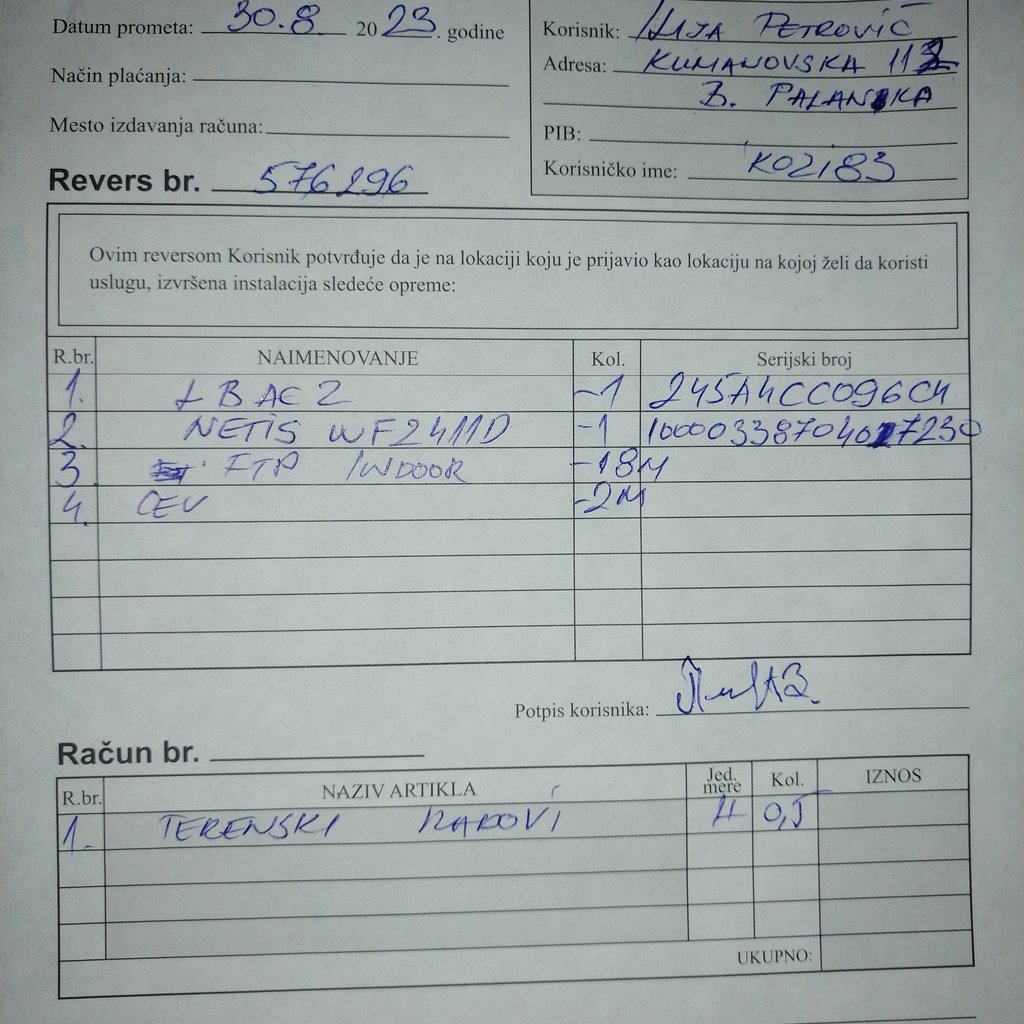 Datum prometa: 30.8. 2023. godine
Način plaćanja:
Mesto izdavanja računa:
Revers br. 576296
Korisnik: Ilija PETROVIĆ
Adresa: KUMANOVSKA 112
B. PALANKA
PIB:
Korisničko ime: KO2183
Ovim reversom Korisnik potvrđuje da je na lokaciji koju je prijavio kao lokaciju na kojoj želi da koristi
uslugu, izvršena instalacija sledeće opreme:
R.br. NAIMENOVANJE Kol. Serijski broj
1. LBAC2 -1 245A4CC096C4
2. NETIS WF2411D -1
3 FTP INDOOR -18M
4. CEV -2M
Potpis korisnika:
Račun br.
R.br. NAZIV ARTIKLA Jed. mere Kol. IZNOS
1. TERENSKI RADOVI H 0,5
UKUPNO: